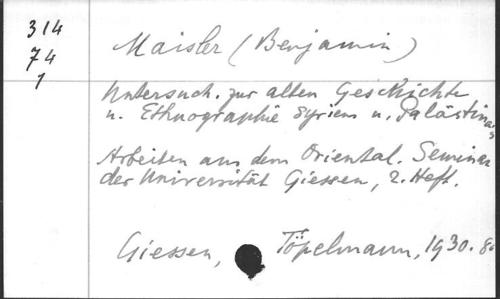 314
74
1
Maisler (Benjamin)
Untersuch. zur alten Geschichte
u. Ethnographie Syriens u. Palästinas
Arbeiten aus dem Oriental. Seminar
der Universität Giessen, 2. Heft.
Giessen, Töpelmann, 1930. 8°